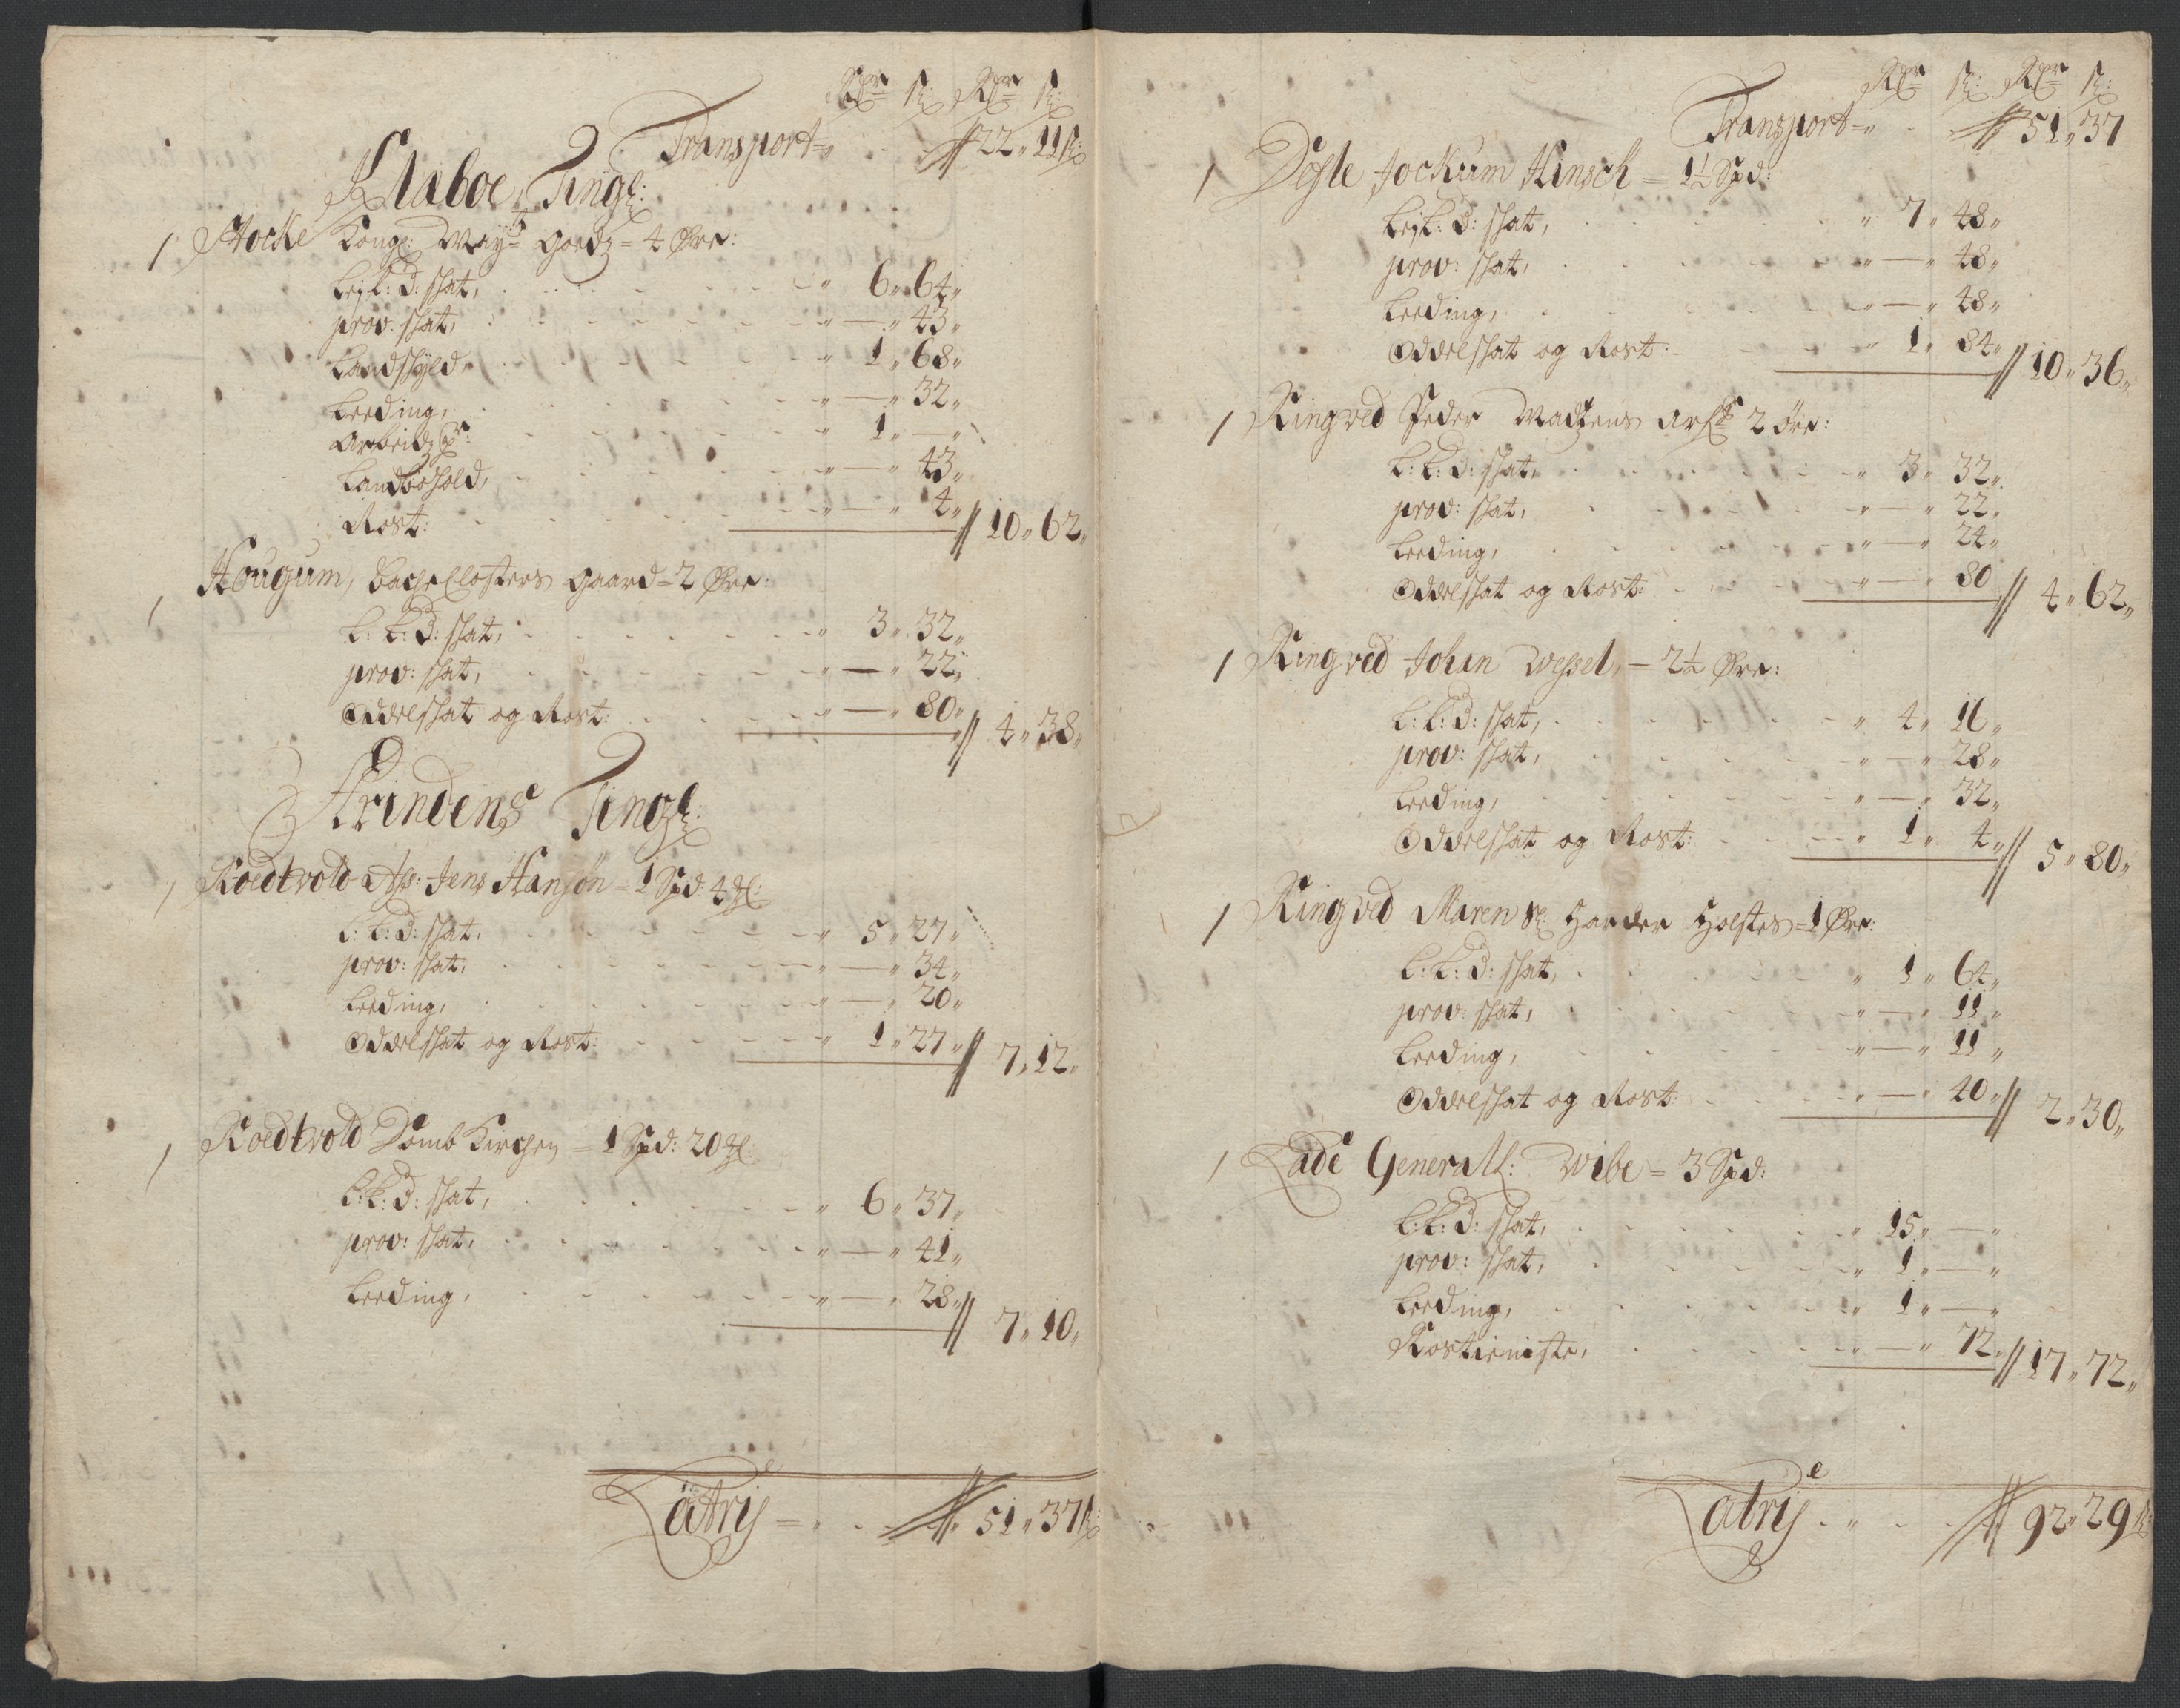 Rdr ß: Rdr ß:
Transport = 22 11 ß:
Klaboe Tingl:
1 Hocke Kongl: May: Goedz = 4 Øre:
Leil: d: skat, 6 64
prov: skat, — 43
Landskyld, 1 68
Leeding, — 32
Arbeidz pr: 1 —
Landbohold, — 43
Rost: — 4 10 62
1 Hougum, Bache Closters Gaard = 2 Øre:
L: L: d: skat, 3 32
prov: skat, — 22
Oddelskat og Rost: — 80 4 38
Strindens Tingl:
1 Roedtvold Ass: Jens Hansøn = 1 Spd 4 ml:
L: L: d: skat, 5 27
prov: skat, — 34
Leeding, — 20
Oddelskat og Rost: 1 27 7 12
1 Roedtvold Domb Kirchen = 1 Spd: 20 ml:
L: L: d: skat, 6 37
prov: skat, — 41
Leeding, — 28 7 10
Latris = 51 37 ß:
Rdr ß: Rdr ß:
Transport = 51 37
1 Døhle Jockum Hinsch = 1½ Spd:
Leil: d: skat, 7 48
prov: skat, — 48
Leeding, — 48
Oddelskat og Rost: 1 84 10 36
1 Ringved Peder Madzens Arf: 2 Øre:
L: L: d: skat, 3 32
prov: skat, — 22
Leeding, — 24
Oddelskat og Rost: — 80 4 62
1 Ringved Johan Wessel, = 2½ Øre:
L: L: d: skat, 4 16
prov: skat, — 28
Leeding, — 32
Oddelskat og Rost: 1 4 5 80
1 Ringved Maren Sl: Harder Holstes = 1 Øre:
L: L: d: skat, 1 64
prov: skat, — 11
Leeding, — 11
Oddelskat og Rost: — 40 2 30
1 Lade Generall: Wibe = 3 Spd:
L: L: d: skat, 15 —
prov: skat, 1 —
Leeding, 1 —
Rostieniste, — 72 17 72
Latris 92 29 ß: